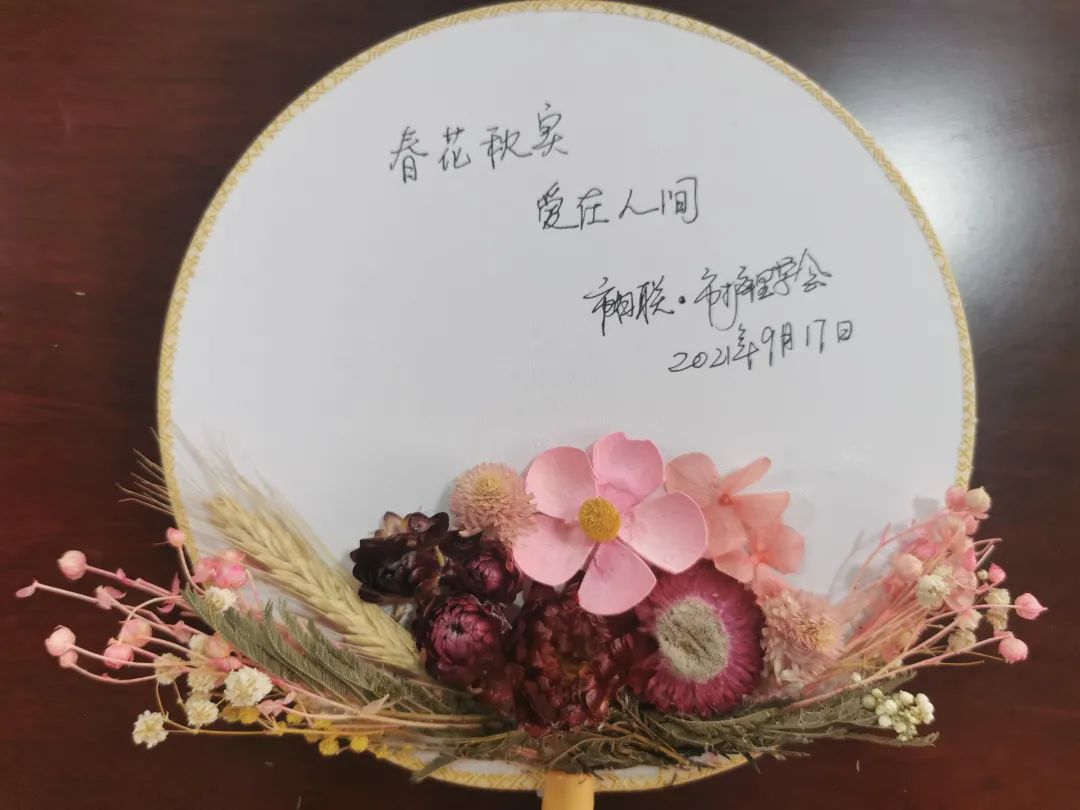 春花秋实
爱在人间
市妇联·市护理学会
2021年9月17日